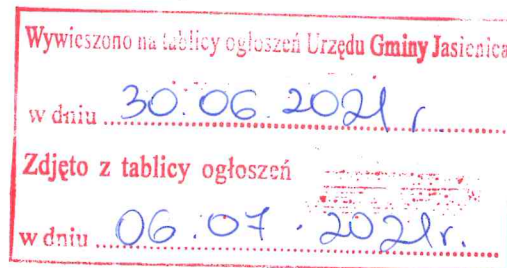 Wywieszono na tablicy ogłoszeń Urzędu Gminy Jasienica
w dniu 30.06.2021 r
Zdjęto z tablicy ogłoszeń
w dniu 06.07.2021r.